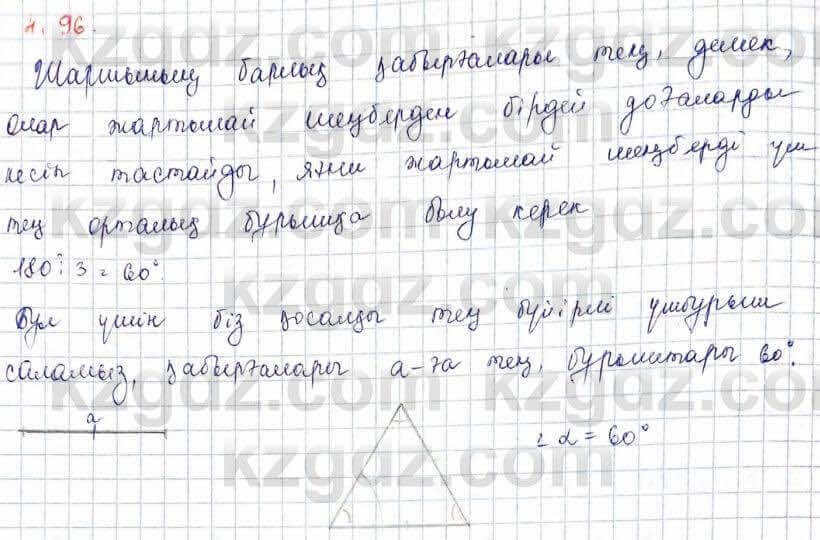 4. 96.
Шаршының барлық қабырғалары тең, демек,
олар жартылай шеңберден бірдей доғаларды
кесіп тастайды, яғни жартылай шеңберді үш
тең орталық бұрышқа бөлу керек
180 : 3 = 60°.
Бұл үшін біз қосалқы тең бүйірлі үшбұрыш
саламыз, қабырғалары a-ға тең, бұрыштары 60°.
a
∠ α = 60°
kzgdz.com
kzgdz.com
kzgdz.com
kzgdz.com
kzgdz.com
kzgdz.com